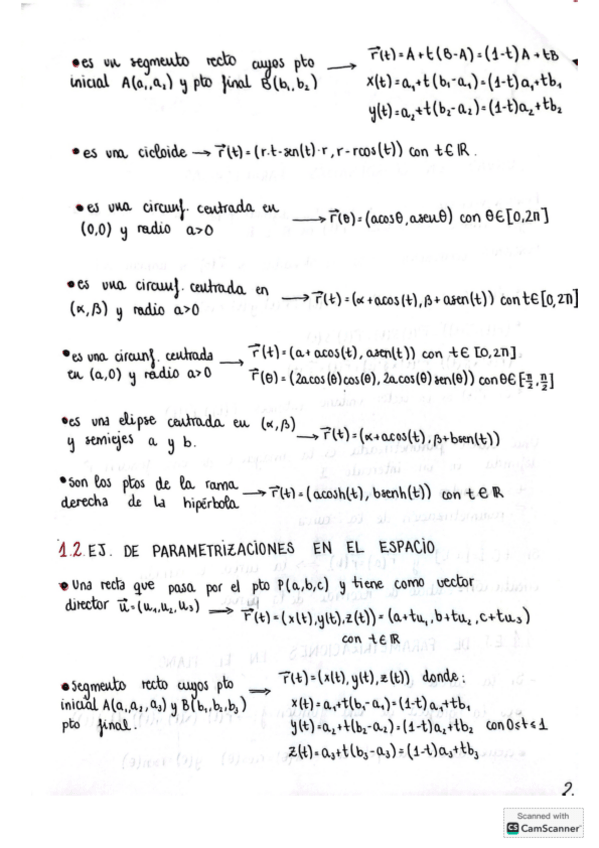 • es un segmento recto cuyos pto inicial A(a₁,a₂) y pto final B(b₁,b₂) → r⃗(t)=A+t(B-A)=(1-t)A+tB
x(t)=a₁+t(b₁-a₁)=(1-t)a₁+tb₁
y(t)=a₂+t(b₂-a₂)=(1-t)a₂+tb₂
• es una cicloide → r⃗(t)=(r.t-sen(t)·r, r-rcos(t)) con t∈ℝ.
• es una circunf. centrada en (0,0) y radio a>0 → r⃗(θ)=(acosθ, asenθ) con θ∈[0,2π]
• es una circunf. centrada en (α,β) y radio a>0 → r⃗(t)=(α+acos(t), β+asen(t)) con t∈[0,2π]
• es una circunf. centrada en (a,0) y radio a>0 → r⃗(t)=(a+acos(t), asen(t)) con t∈[0,2π].
r⃗(θ)=(2acos(θ)cos(θ), 2acos(θ)sen(θ)) con θ∈[π/2, π/2]
• es una elipse centrada en (α,β) y semiejes a y b. → r⃗(t)=(α+acos(t), β+bsen(t))
• son los ptos de la rama derecha de la hipérbola → r⃗(t)=(acosh(t), bsenh(t)) con t∈ℝ
1.2. EJ. DE PARAMETRIZACIONES EN EL ESPACIO
• Una recta que pasa por el pto P(a,b,c) y tiene como vector
director u⃗=(u₁,u₂,u₃) → r⃗(t)=(x(t),y(t),z(t))=(a+tu₁,b+tu₂,c+tu₃)
con t∈ℝ
• segmento recto cuyos pto inicial A(a₁,a₂,a₃) y B(b₁,b₂,b₃) pto final. → r⃗(t)=(x(t),y(t),z(t)) donde:
x(t)=a₁+t(b₁-a₁)=(1-t)a₁+tb₁
y(t)=a₂+t(b₂-a₂)=(1-t)a₂+tb₂ con 0≤t≤1
z(t)=a₃+t(b₃-a₃)=(1-t)a₃+tb₃
2.
Scanned with
CS CamScanner